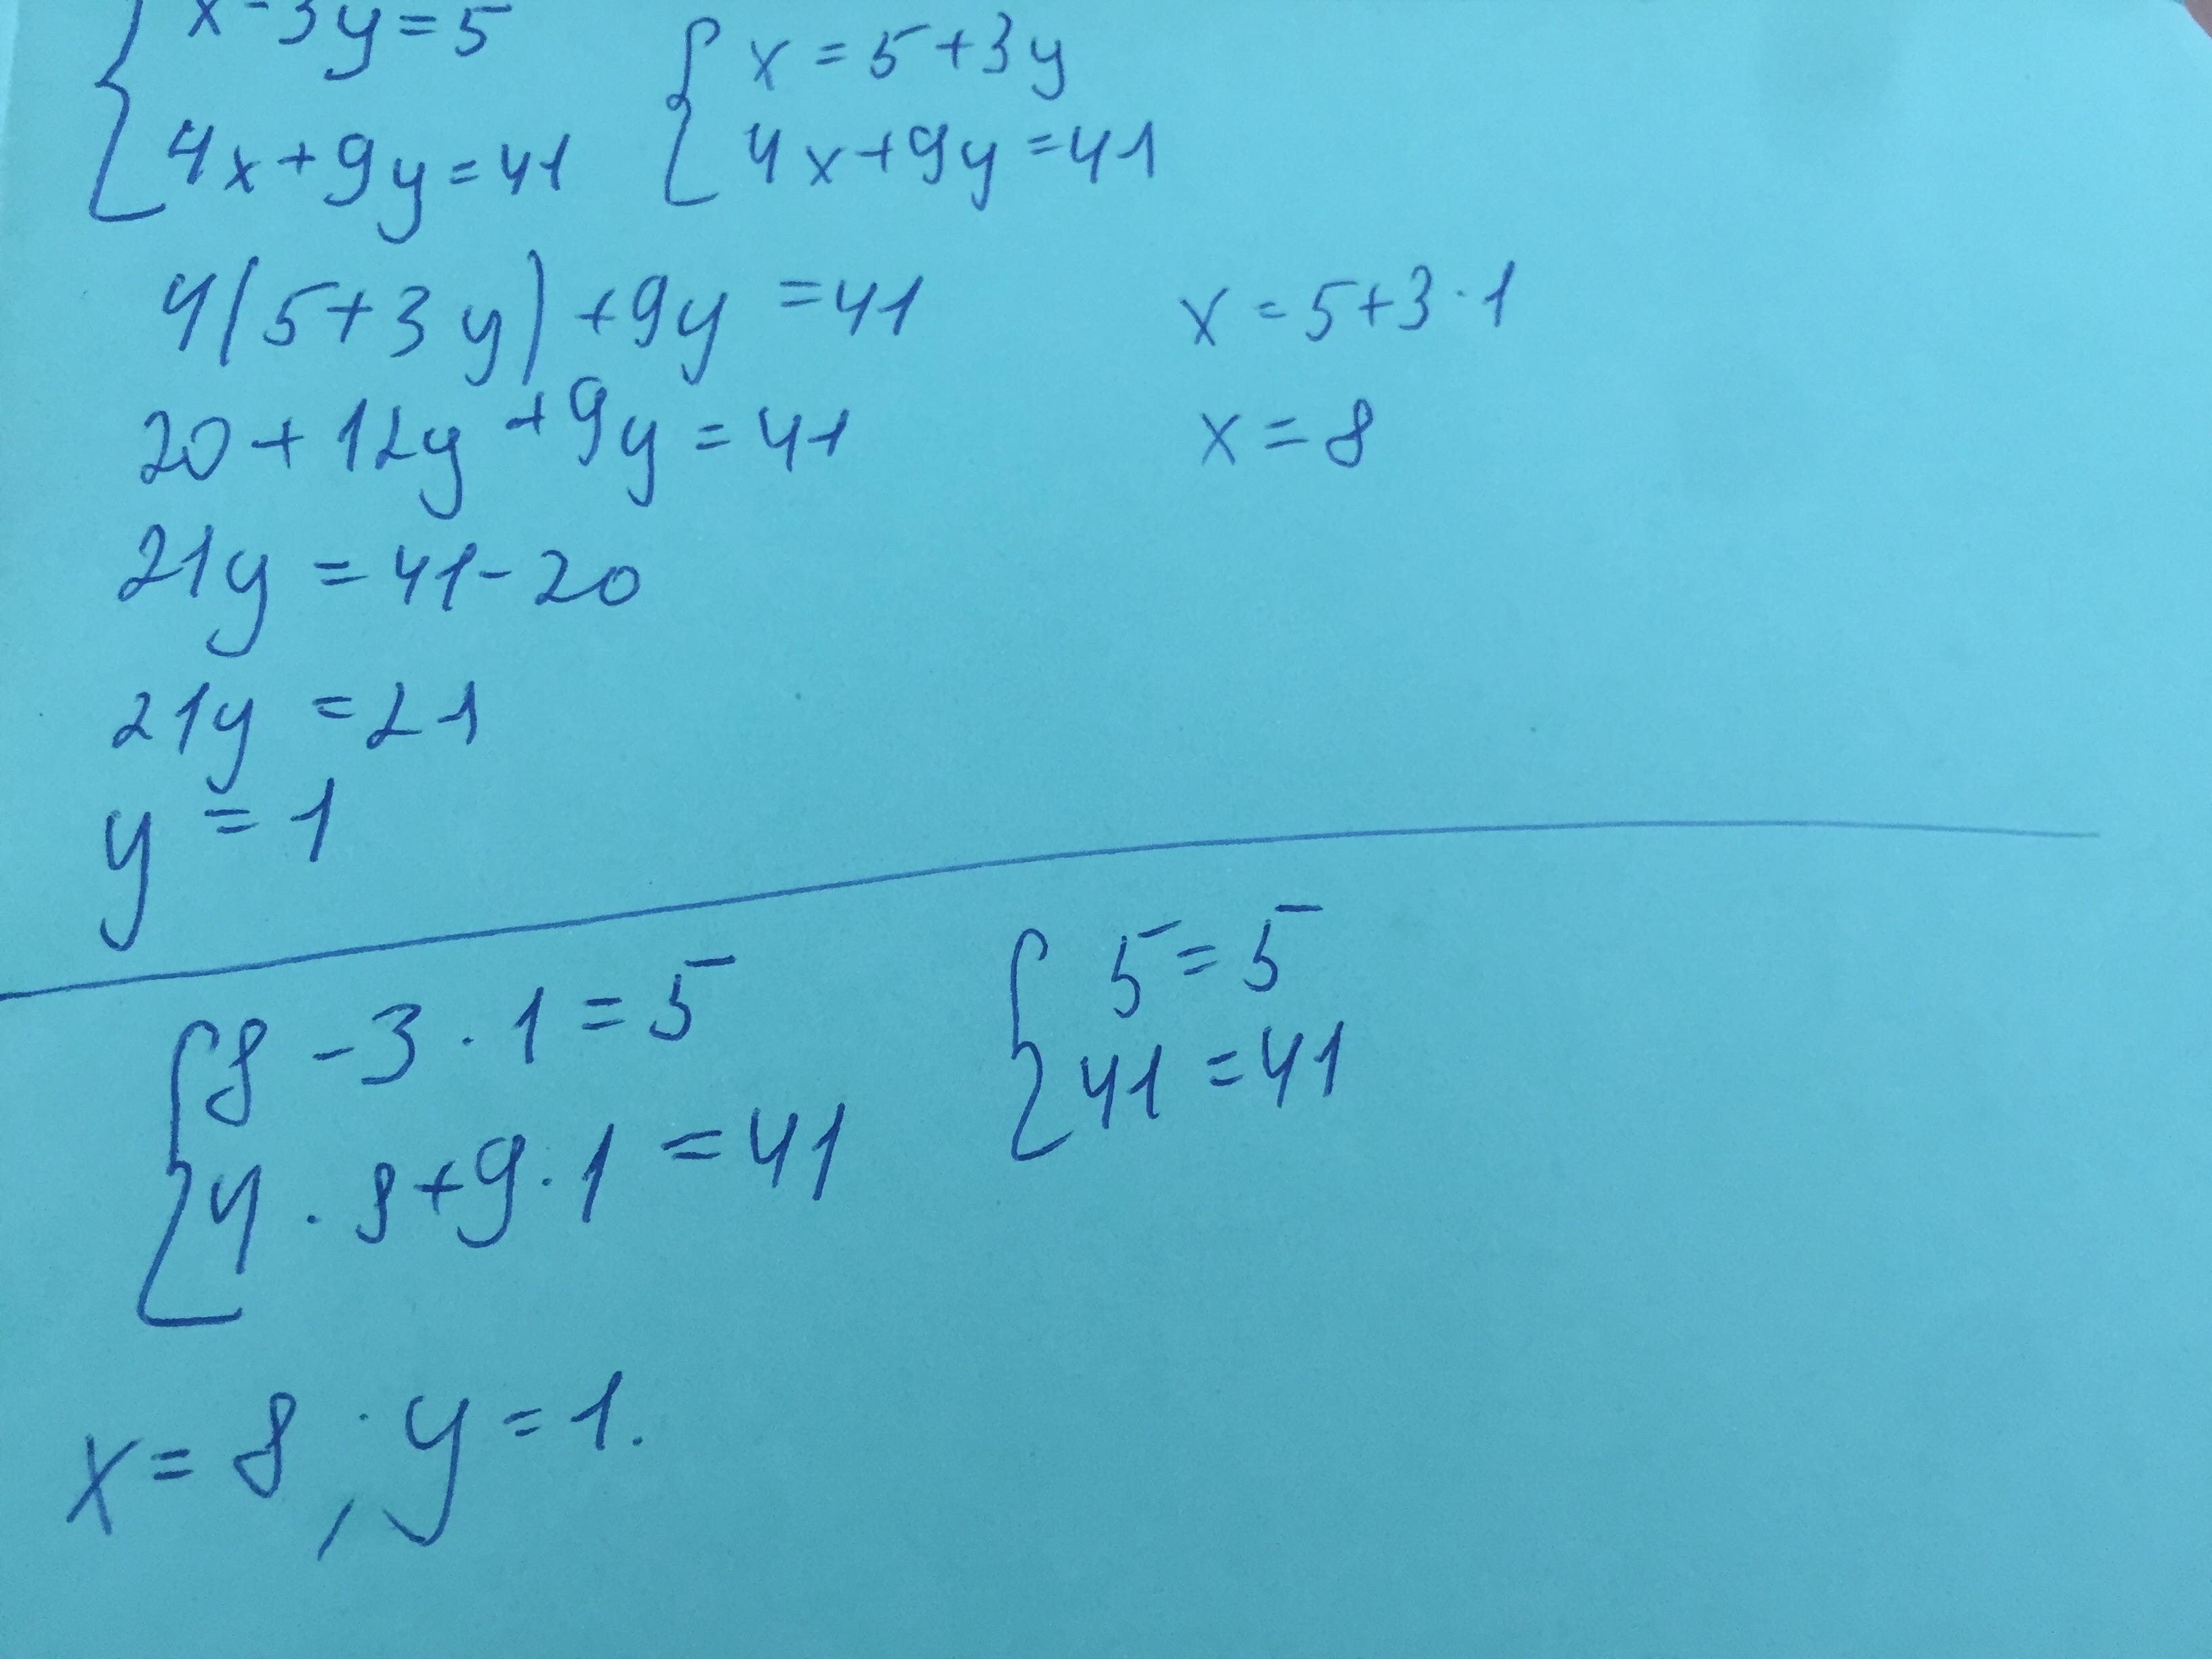 x-3y=5
4x+9y=41
x=5+3y
4x+9y=41
4(5+3y)+9y=41
20+12y+9y=41
21y=41-20
21y=21
y=1
x=5+3·1
x=8
8-3·1=5
4·8+9·1=41
5=5
41=41
x=8; y=1.